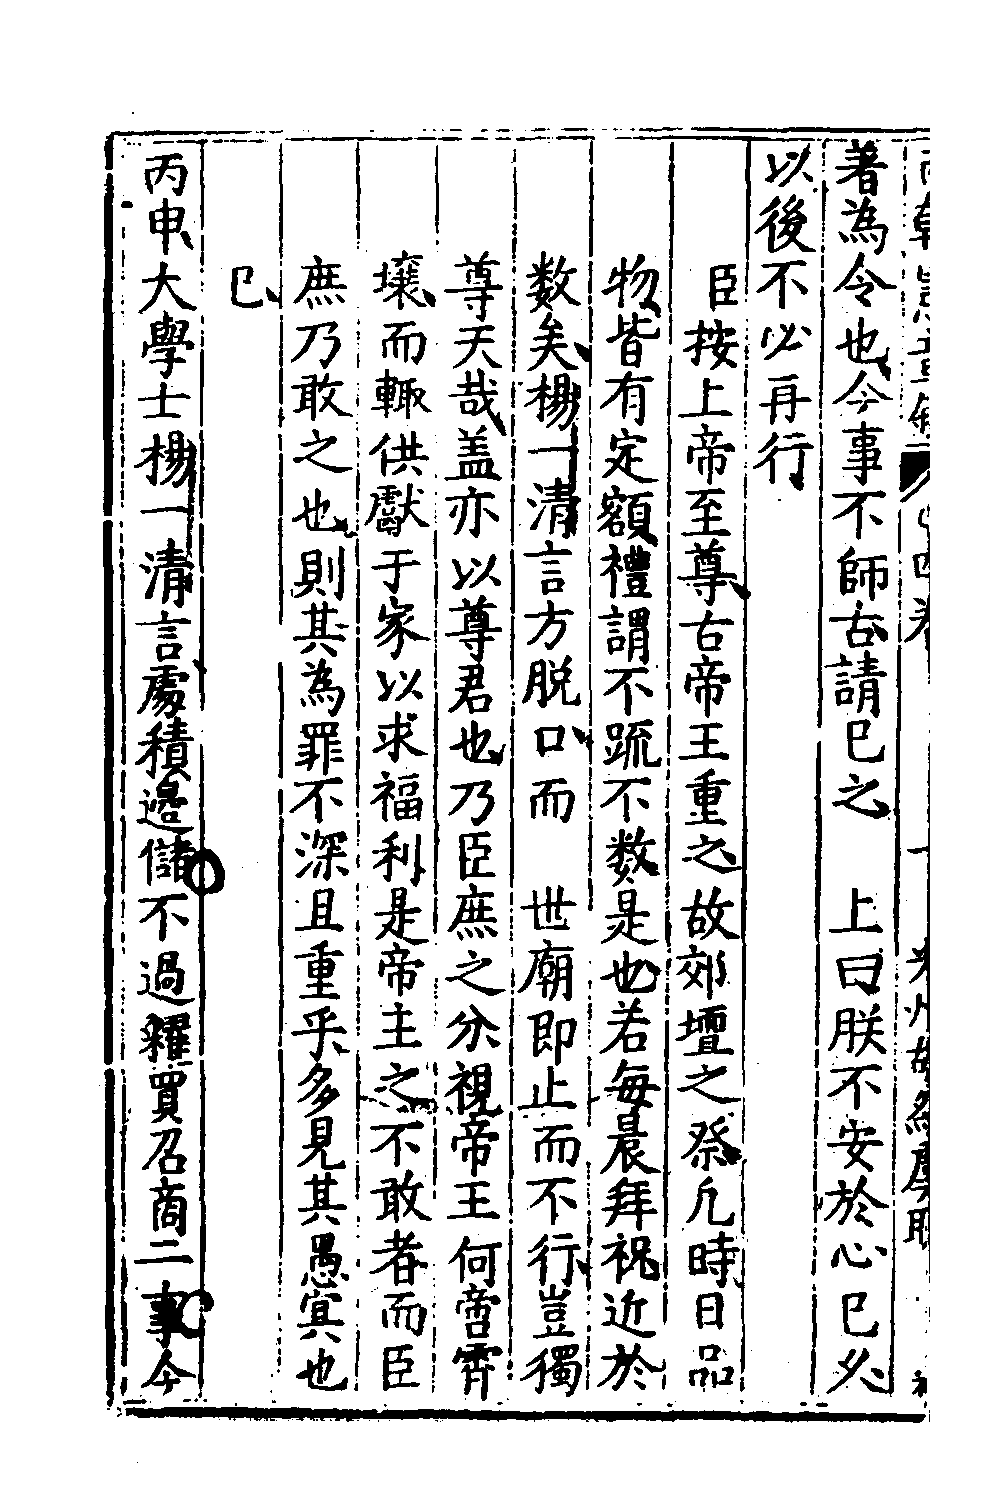 著為令也今事不師古請已之　上曰朕不安於心已久
以後不必再行
臣按上帝至尊古帝王重之故郊壇之祭凡時日品
物皆有定額禮謂不疏不数是也若每晨拜祝近於
数矣楊一清言方脱口而　世廟即止而不行豈獨
尊天哉盖亦以尊君也乃臣庶之分視帝王何啻霄
壤而輙供獻于家以求福利是帝主之不敢者而臣
庶乃敢之也則其為罪不深且重乎多見其愚冥也
已
丙申大學士楊一清言處積邊儲不過糴買召商二事今